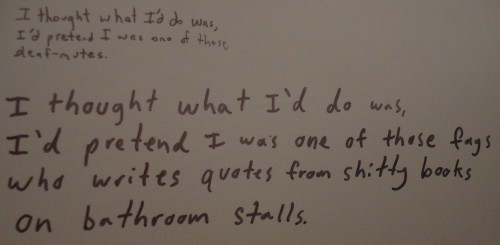 I thought what I'd do was,
I'd pretend I was one of those
deaf-mutes.
I thought what I'd do was,
I'd pretend I was one of those fags
who writes quotes from shitty books
on bathroom stalls.